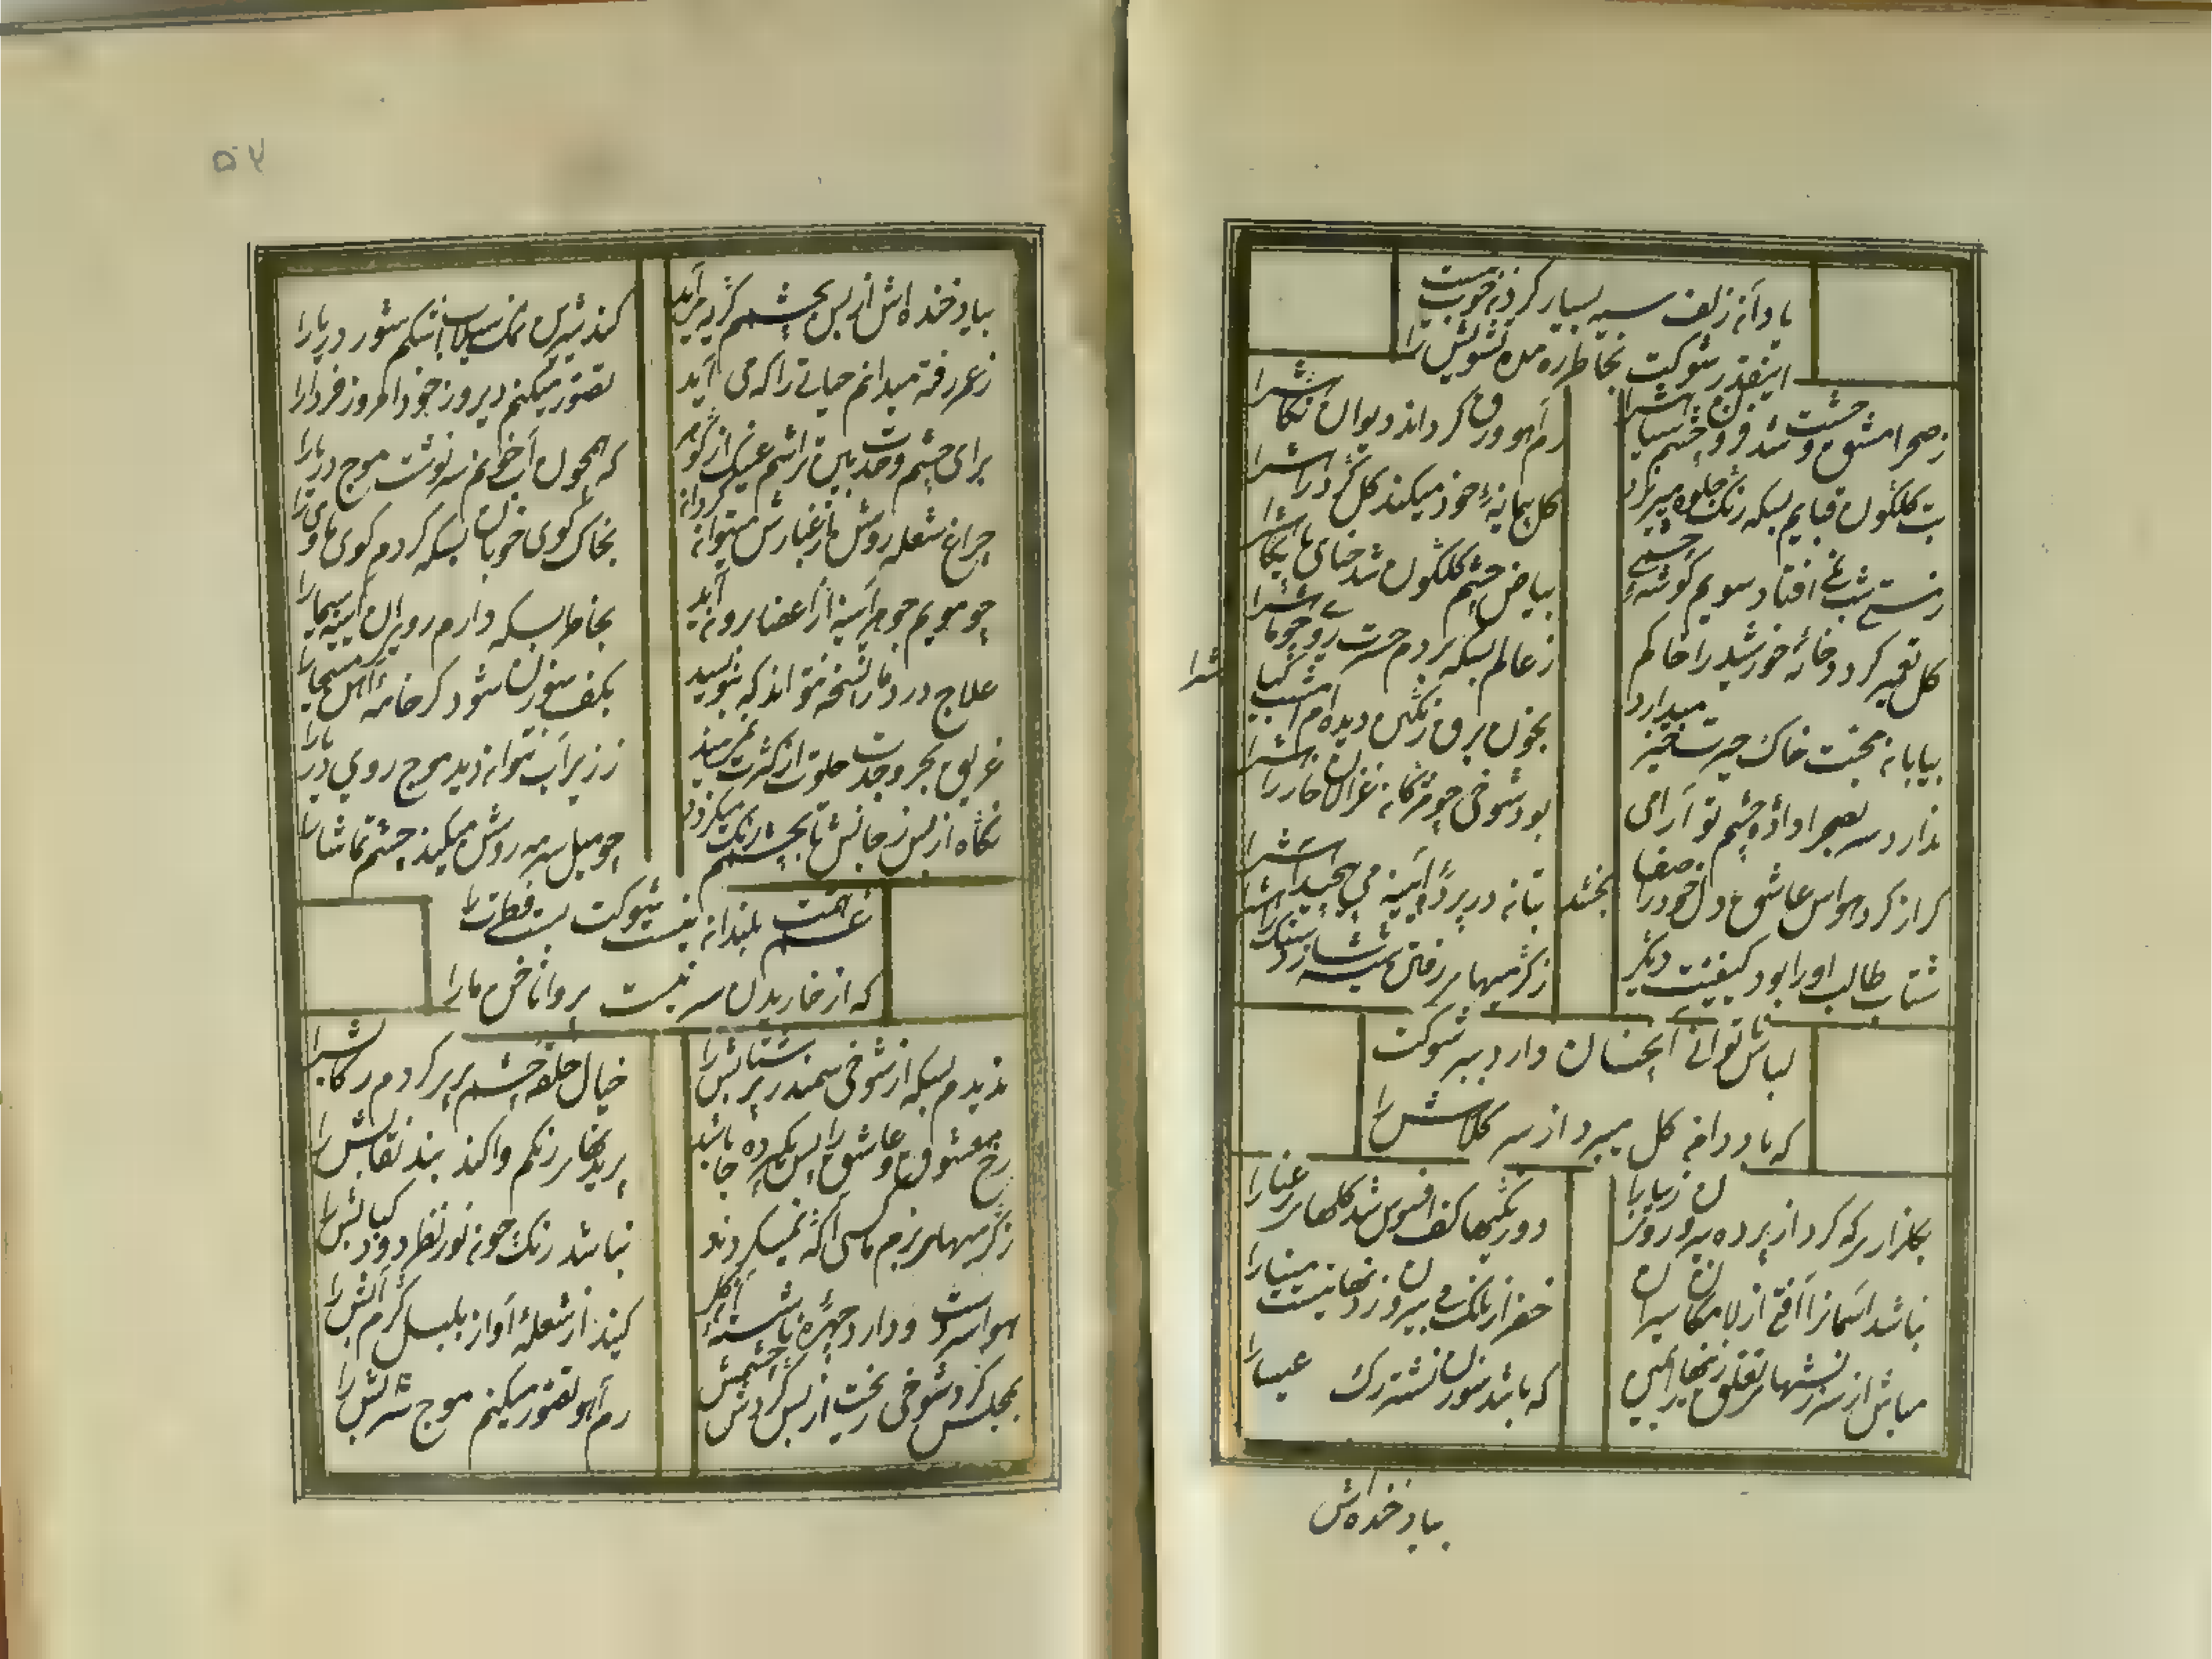 یاد آن زلف سیه بسیار کردن خوب نیست
اینقدر شوکت بخاطر ره مده تشویش را
ز صحرا مشق وحشت شد فزون چشم سیاهش را
رم آهو ورق گرداند دیوان نگاهش را
بت گلگون قبایم بسکه رنگ جلوه میریزد
گل پیمانهٔ خود میکند گل گرد راهش را
بیاض چشم گلگون شد حنای نگاهش را
گل تعمیر گردد خانهٔ خورشید را خاکم
ز عالم بسکه بردم حسرت روی چو ماهش را
بیابان محبت خاک حیرت خیز میدارد
بخون برق رنگین دیده ام مشت گیاهش را
ندارد سر بصحرا دادهٔ چشم تو آرامی
بود شوخی چو مژگان غزالان خار راهش را
گر از گرد هوس عاشق دل خود را صفا بخشد
بتان در پردهٔ آیینه می پیچید آهش را
شتاب طالب او را بود کیفیت دیگر
ز گرمیهای رفتن شیشه سازد سنگ راهش را
لباس ناتوانی آنچنان دارد ببر شوکت
که باد دامن گل میبرد از سر کلاهش را
بگلزاری که گرد از پرده بیرون روی زیبا را
دو رنگیها کف افسوس شد گلهای رعنا را
نباشد آسمان را آفتی از لامکان سیران
خطر از سنگ بیرون نیست مینا را
مباش از سرزنشهای تعلق بی رنج ایمن
که باشد سوزن نشتر رگ عیسا را
بیاد خنده اش
۵۷
بیاد خنده اش از بس بچشمم گریه می آید
کند شیرین نمک سیلاب اشکم شور دریا را
ز عمر رفته میدانم حیاتی را که می آید
تصور میکنم دیروز خود امروز فردا را
برای چشم وحدت بین تراشم عینک از گوهر
که همچون آب خوانم سرنوشت موج دریا را
چراغ شعله روشن از غبارش میتوان کردن
بخاک کوی خوبان بسکه کردم گرم جا را
چو مویم جوهر آیینه از اعضا برون آید
بخاطر بسکه دارم روی آن آیینه سیما را
علاج درد ما را نسخه نتواند که بنویسد
بکف سوزن شود گر خامهٔ آهن مسیحا را
غریق بحر وحدت جلوه از کثرت نمی بیند
ز زیر آب نتوان دید موج روی دریا را
نگاه از بس ز جانش تا بچشمم رنگ میگیرد
چو میل سرمه روشن میکند چشم تماشا را
غم همت بلندان نیست شوکت پست فطرت را
که از خاریدن سر نیست پروا ناخن پا را
ندیدم بسکه از شوخی سمند پر شتابش را
خیال حلقهٔ چشم پری کردم رکابش را
رخ معشوق و عاشق را بس یک پرده جا باشد
پریدنهای رنگم وا کند بند نقابش را
ز گرمیهای بزم ما کسی آگه نمیگردد
نباشد رنگ چون نور نظر دود کبابش را
هوا سرد است و دارد چهرهٔ ناشسته آن گل
کنید از شعلهٔ آواز بلبل گرم آبش را
بمجلس کرد شوخی ریخت از بس گردش چشمش
رم آهو تصور میکنم موج شرابش را